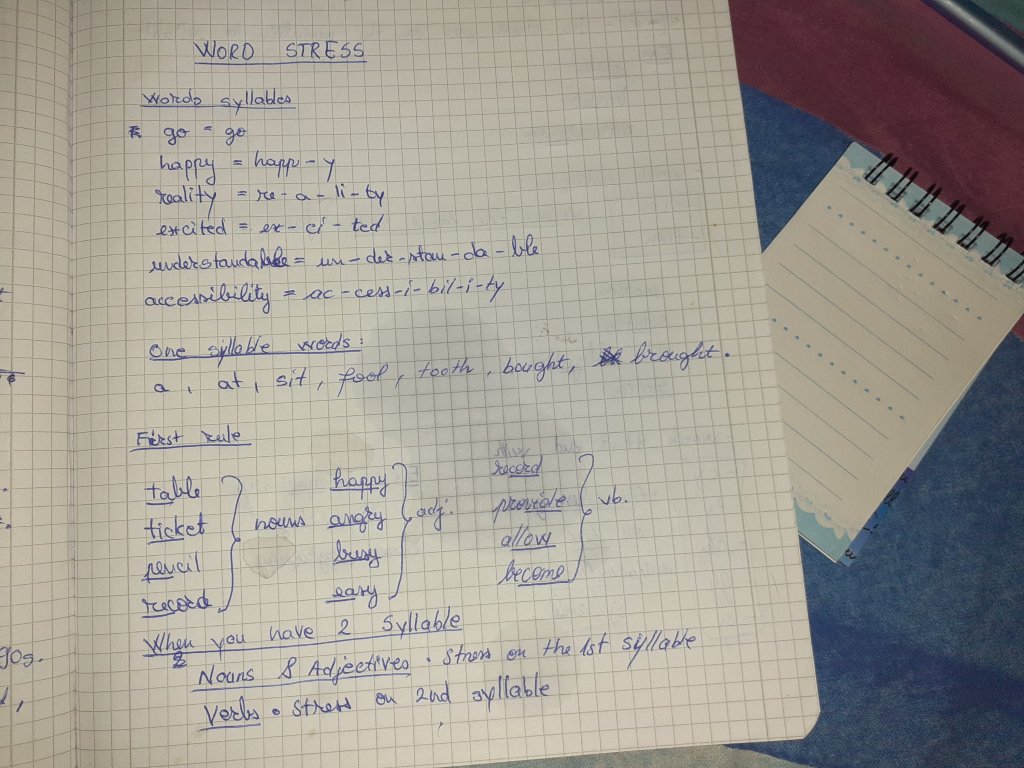 WORD STRESS
Words syllables
go = go
happy = happ - y
reality = re - a - li - ty
excited = ex - ci - ted
understandable = un - der - stan - da - ble
accessibility = ac - cess - i - bil - i - ty
One syllable words :
a , at , sit , fool , tooth , bought , brought .
First rule
table
ticket
pencil
record
nouns
happy
angry
busy
easy
adj.
record
provide
allow
become
vb.
When you have 2 Syllable
Nouns & Adjectives . Stress on the 1st syllable
Verbs . Stress on 2nd syllable